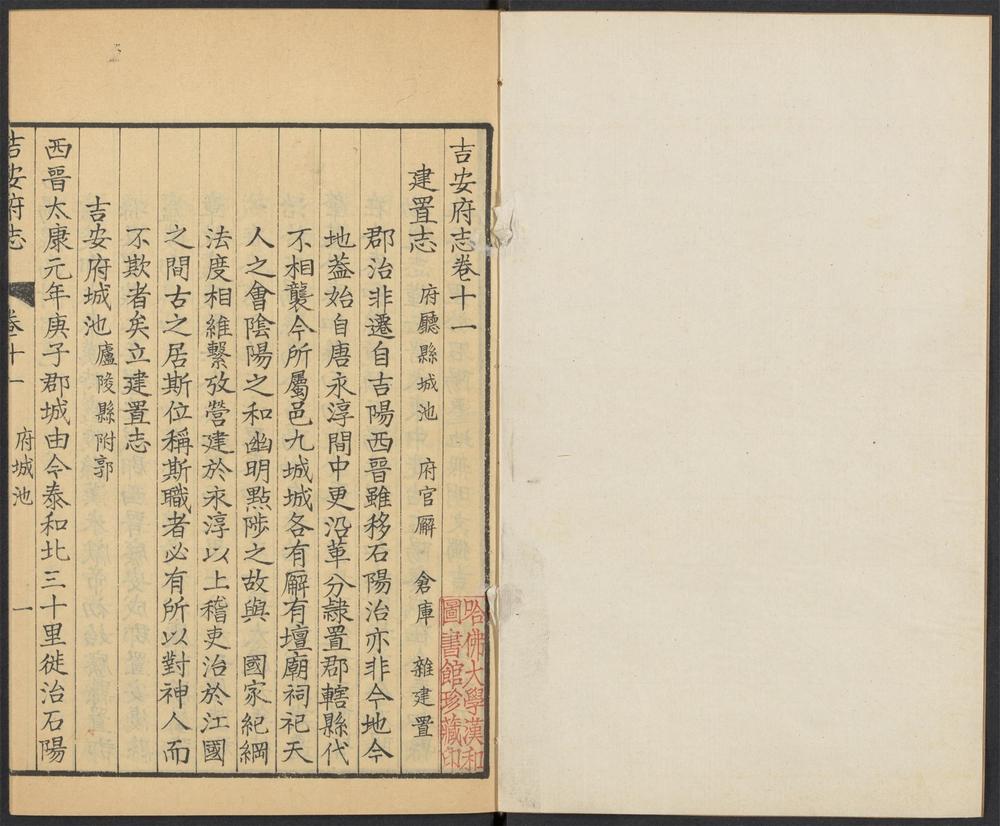 吉安府志卷十一
建置志 府廳縣城池 府官廨 倉庫 雜建置
郡治非遷自吉陽西晉雖移石陽治亦非今地今
地葢始自唐永淳間中更沿革分隷置郡轄縣代
不相襲今所屬邑九城城各有廨有壇廟祠祀天
人之會陰陽之和幽明黜陟之故與 國家紀綱
法度相維繫攷營建於永淳以上稽吏治於江國
之間古之居斯位稱斯職者必有所以對神人而
不欺者矣立建置志
吉安府城池 廬陵縣附郭
西晉太康元年庚子郡城由今泰和北三十里徙治石陽
吉安府志 卷十一 府城池 一
哈佛大學漢和
圖書館珍藏印